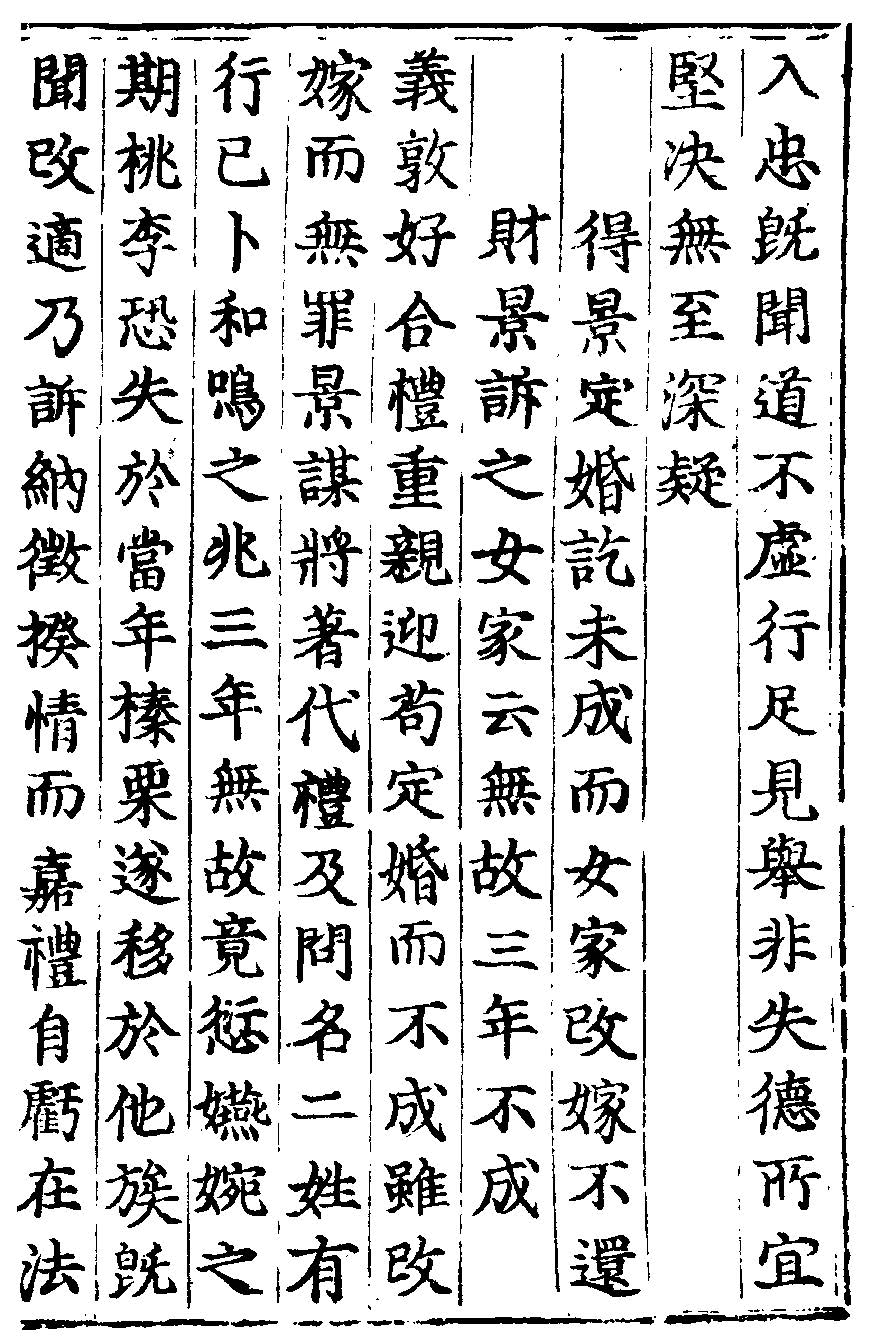 入忠旣聞道不虛行足見舉非失德所宜
堅决無至深疑
得景定婚訖未成而女家改嫁不還
財景訴之女家云無故三年不成
義敦好合禮重親迎苟定婚而不成雖改
嫁而無罪景謀將著代禮及問名二姓有
行已卜和鳴之兆三年無故竟愆嬿婉之
期桃李恐失於當年榛栗遂移於他族旣
聞改適乃訴納徵揆情而嘉禮自虧在法